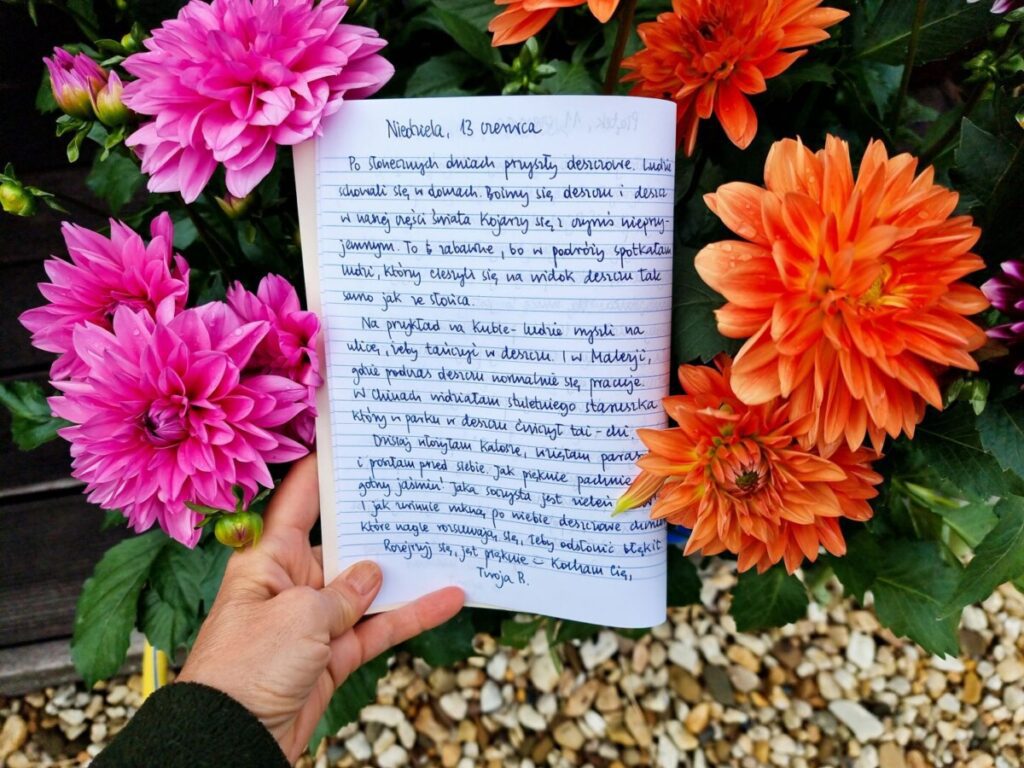 Niedziela, 13 czerwca
Po słonecznych dniach przyszły deszczowe. Ludzie
schowali się w domach. Boimy się deszczu i deszcz
w naszej części świata kojarzy się z czymś nieprzy-
jemnym. To zabawne, bo w podróży spotkałam
ludzi, którzy cieszyli się na widok deszczu tak
samo jak ze słońca.
Na przykład na Kubie - ludzie wyszli na
ulicę, żeby tańczyć w deszczu. I w Malezji,
gdzie podczas deszczu normalnie się pracuje.
W Chinach widziałam stuletniego staruszka
który w parku w deszczu ćwiczył tai-chi.
Dzisiaj włożyłam kalosze, wzięłam paras
i poszłam przed siebie. Jak pięknie pachnie
jaśmin! Jaka soczysta jest zieleń
I jak suną po niebie deszczowe
które nagle rozsuwają się, żeby odsłonić błękit
Rozejrzyj się, jest pięknie - Kocham Cię,
Twoja B.